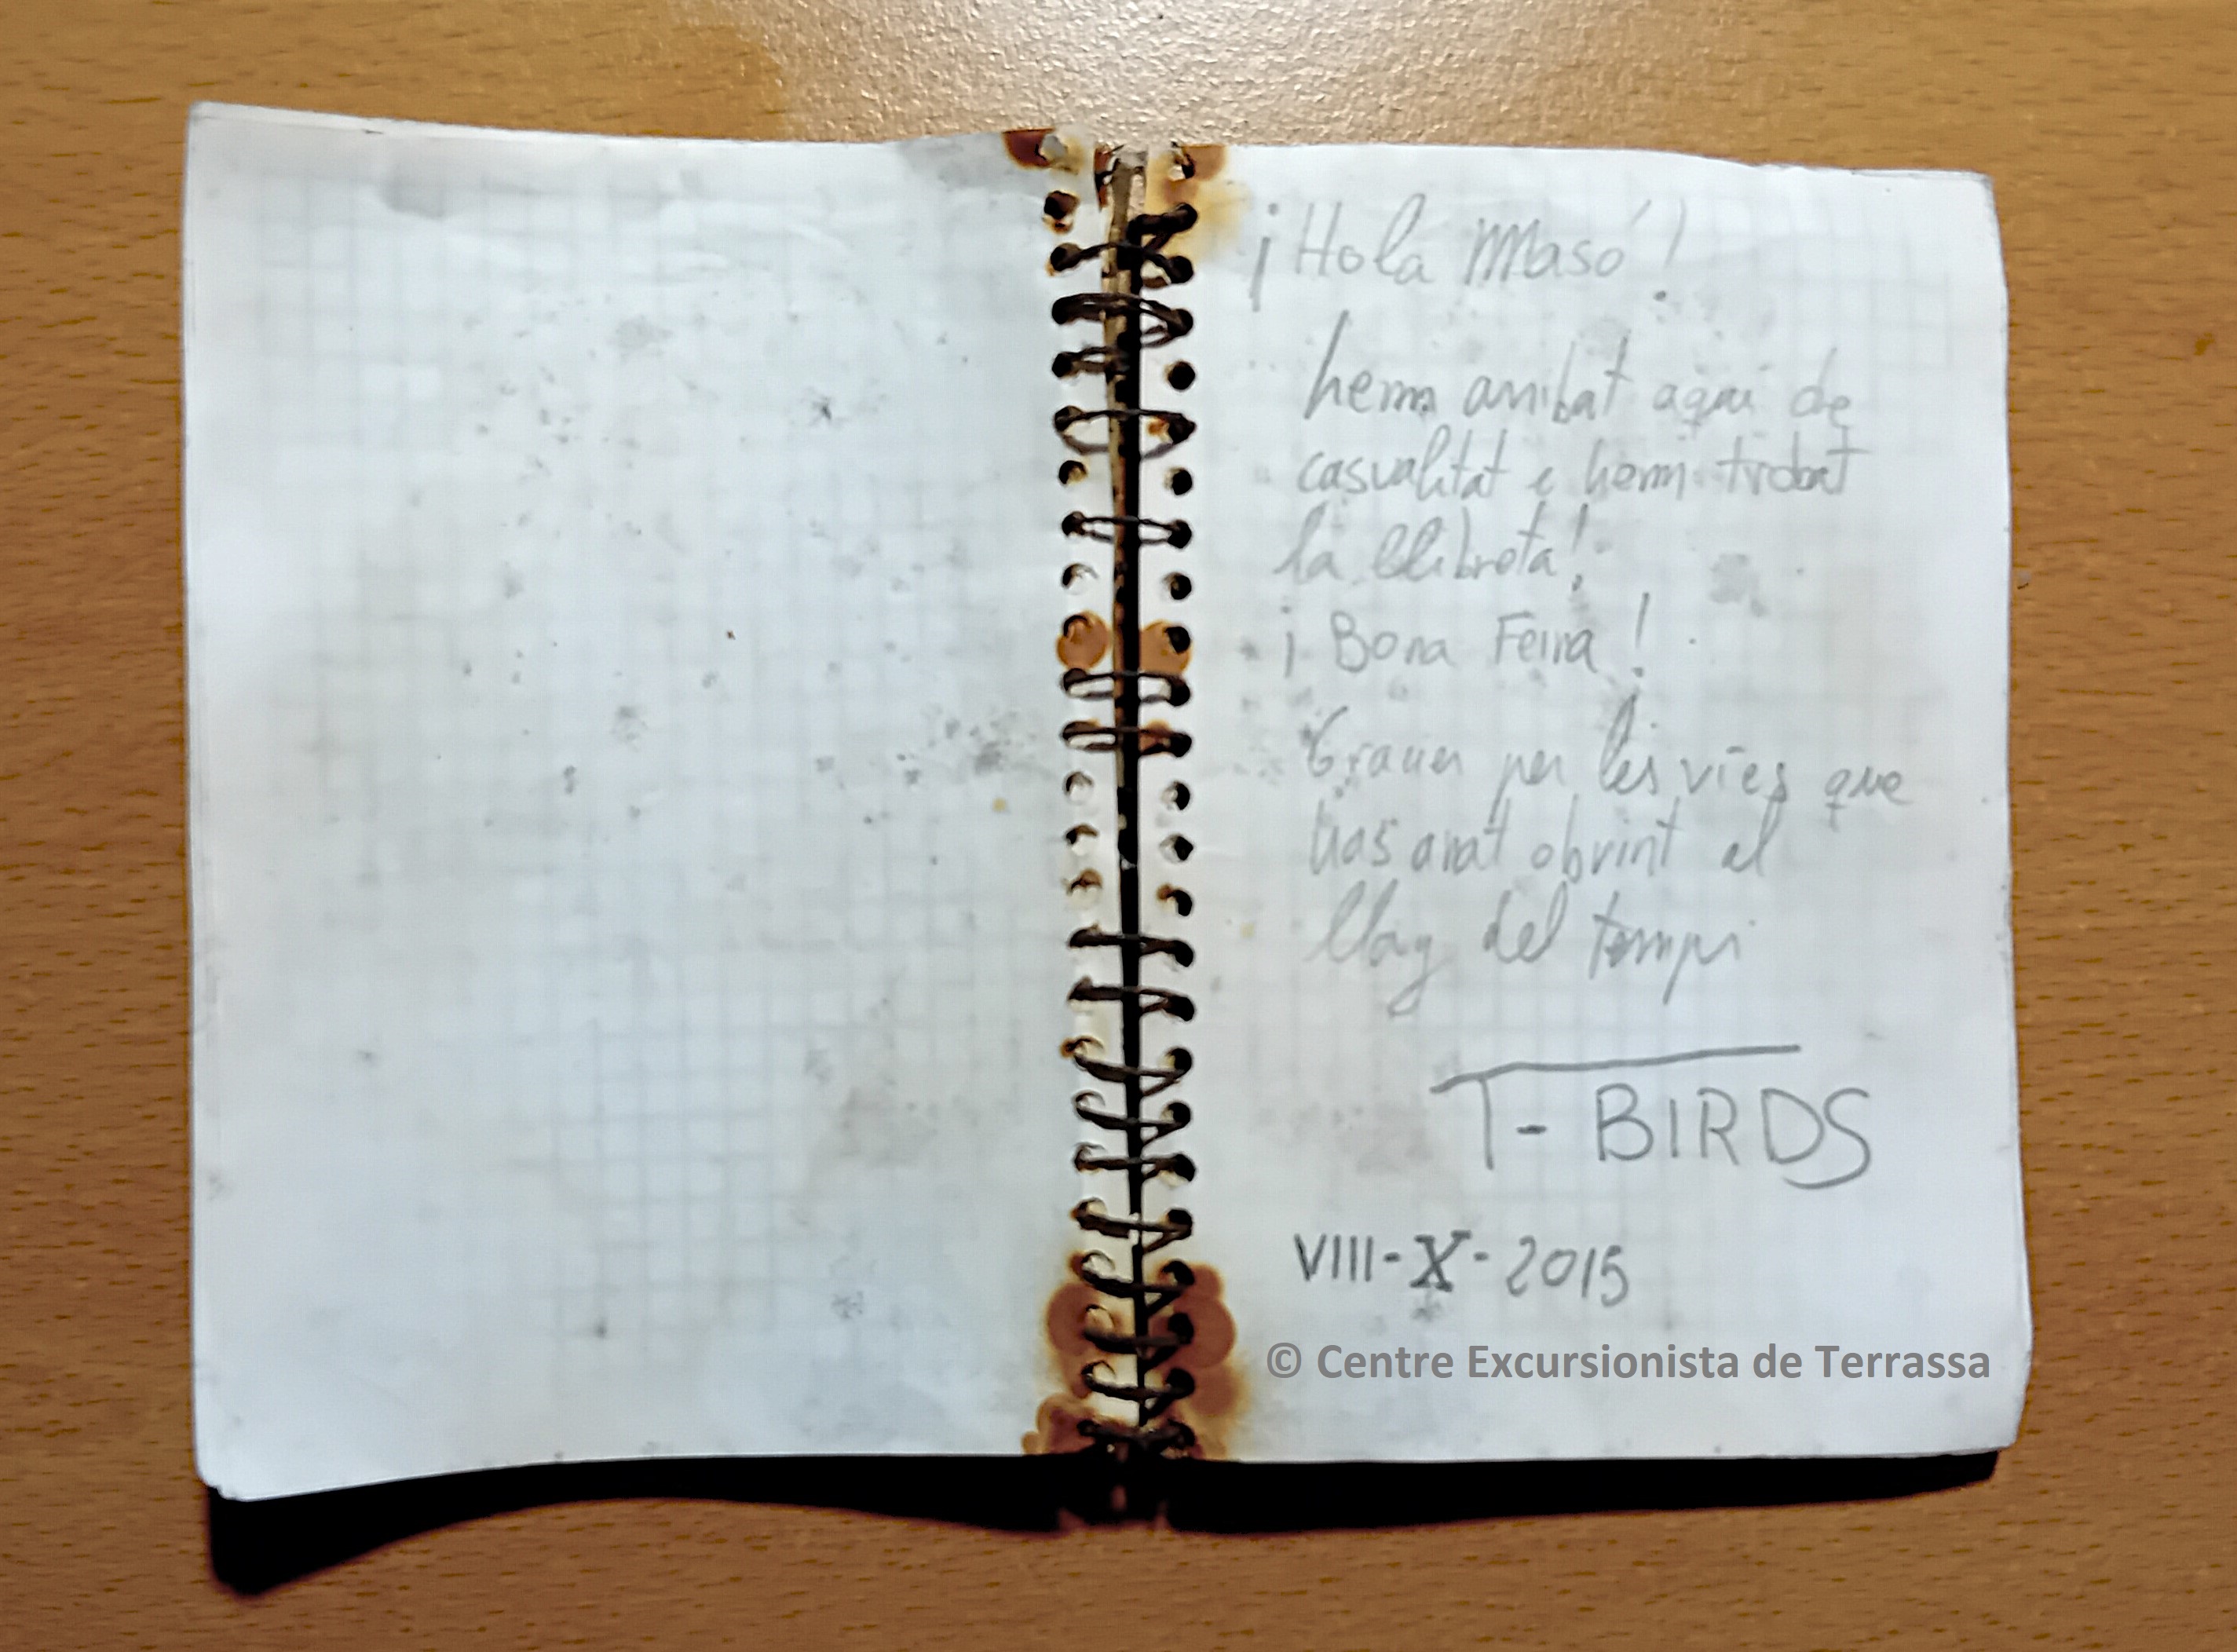 ¡Hola Masó!
hem arribat aqui de
casualitat e hem trobat
la llibreta!
¡Bona Feina!
Gracies per les vies que
has anat obrint al
llarg del temps
T-BIRDS
VIII-X-2015
© Centre Excursionista de Terrassa